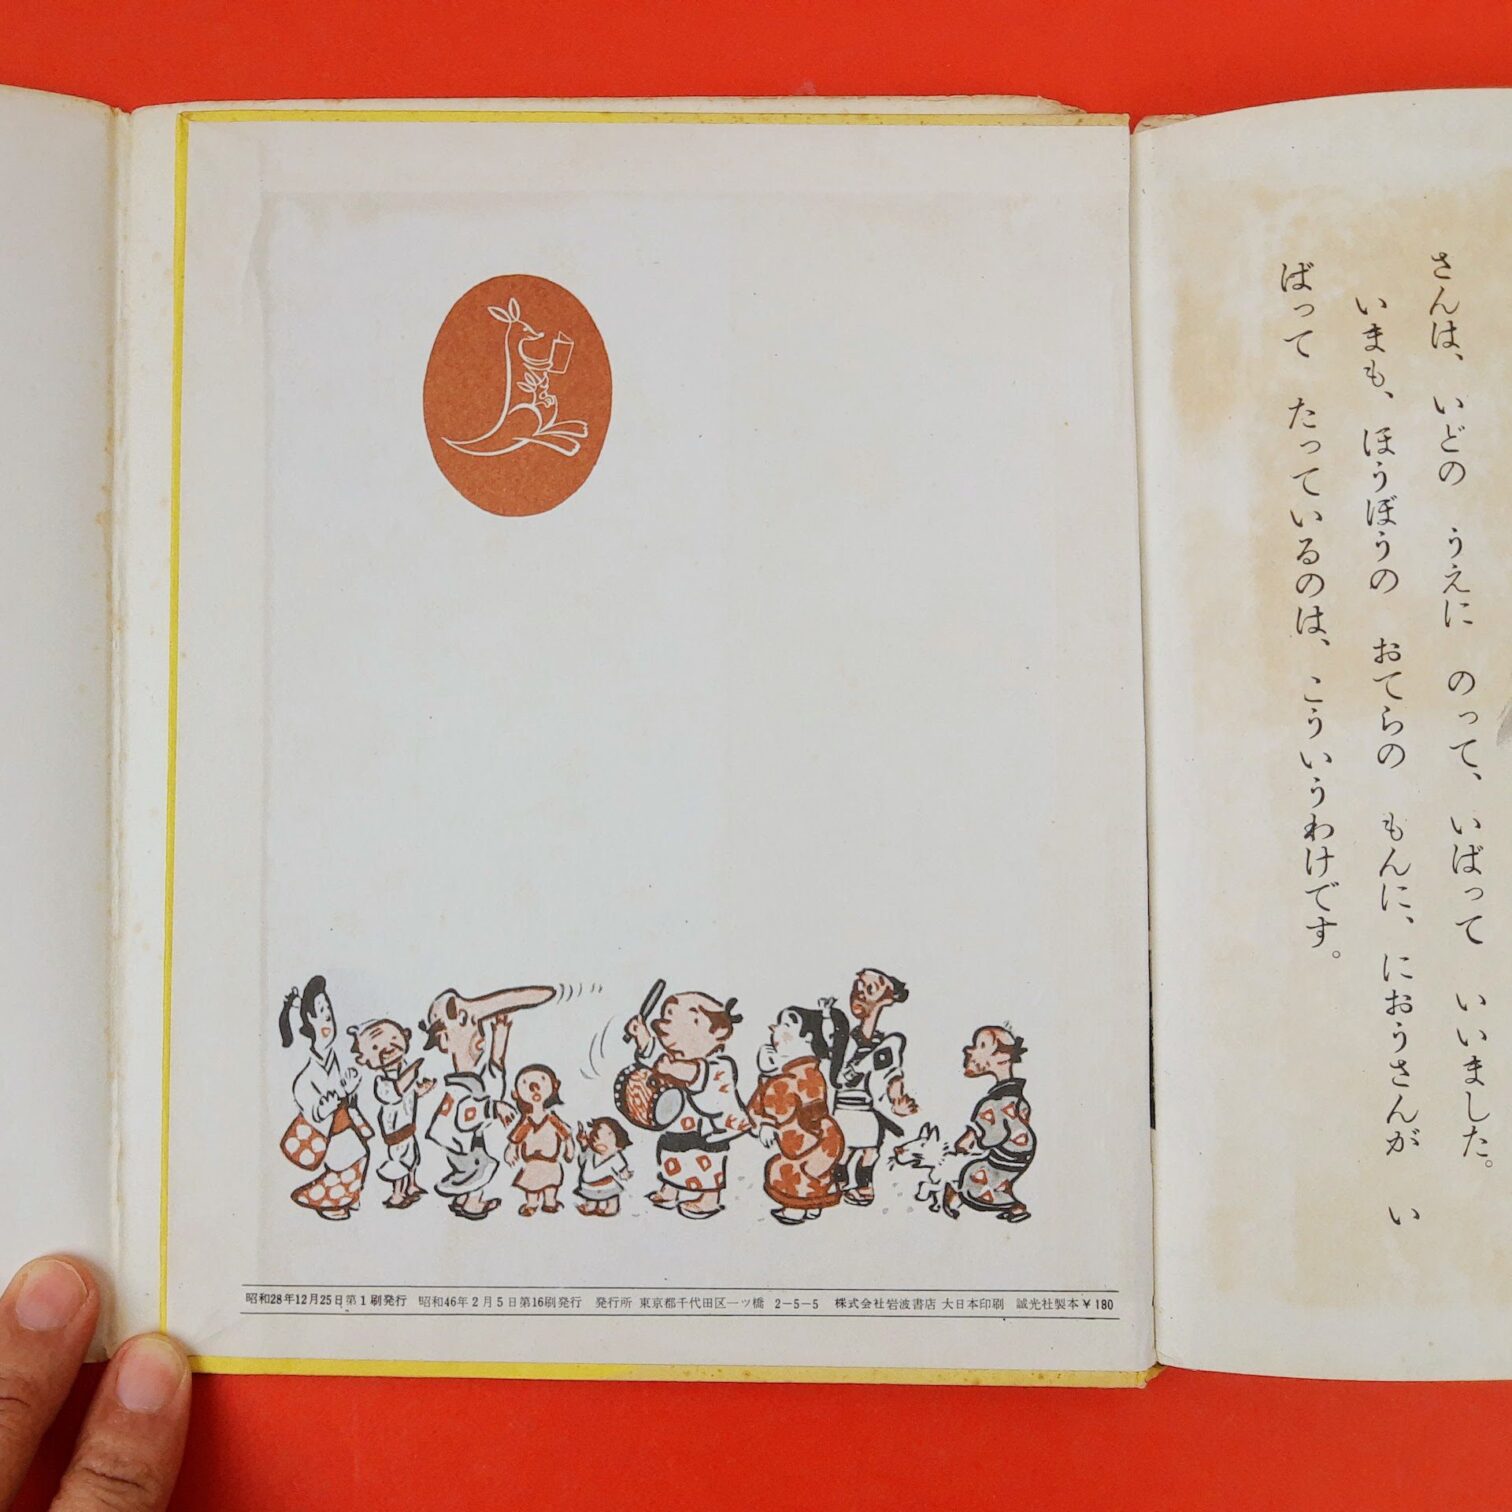 さんは、いどの　うえに　のって、いばって　いいました。
いまも、ほうぼうの　おてらの　もんに、におうさんが　い
ばって　たっているのは、こういうわけです。
昭和28年12月25日第1刷発行　昭和46年2月5日第16刷発行　発行所　東京都千代田区一ツ橋　2－5－5　株式会社岩波書店　大日本印刷　誠光社製本￥180